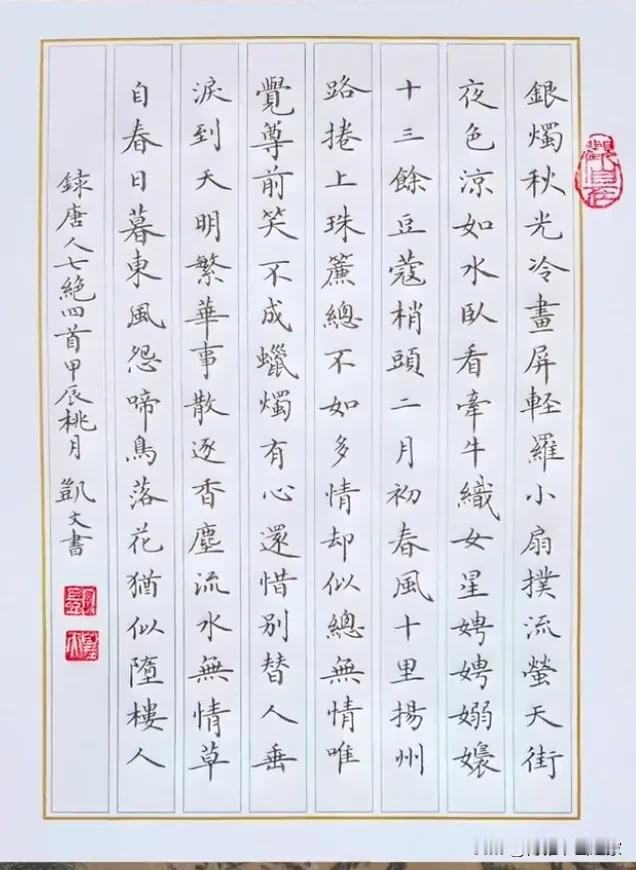 銀燭秋光冷畫屏輊羅小扇撲流螢天街
夜色涼如水臥看牽牛織女星娉娉嫋嬛
十三餘豆蔻梢頭二月初春風十里揚州
路捲上珠簾總不如多情却似總無情唯
覺尊前笑不成蠟燭有心還惜別替人垂
淚到天明繁華事散逐香塵流水無情草
自春日暮東風怨啼鳥落花猶似墮樓人
錄唐人七絕四首甲辰桃月 凱文書